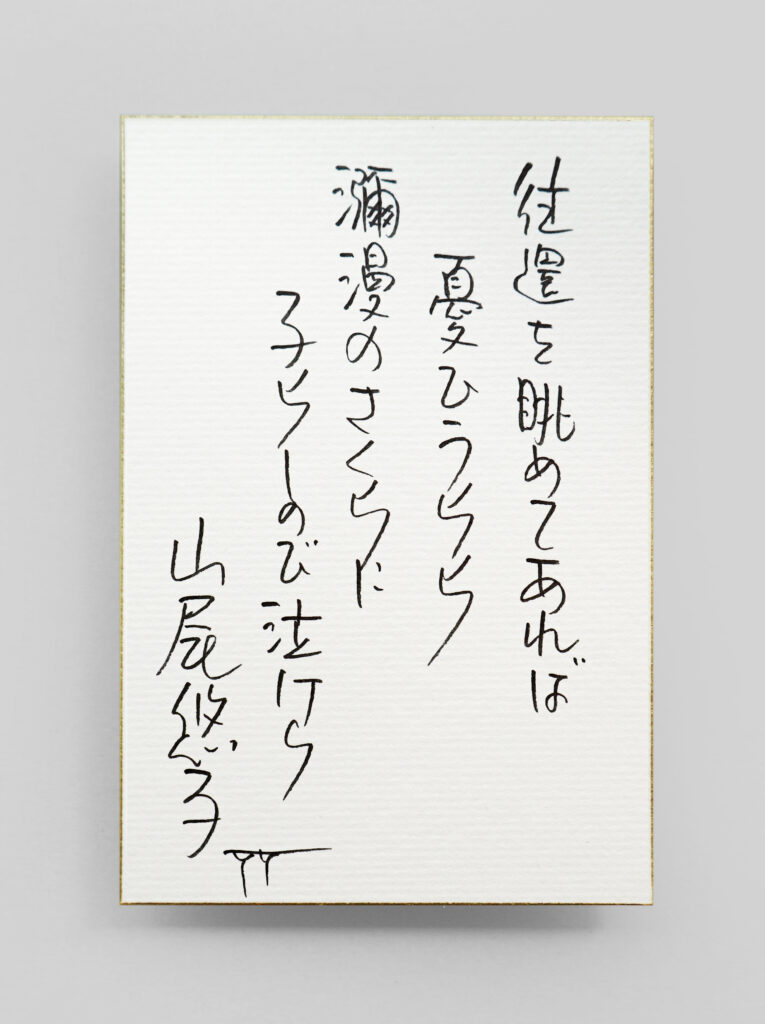 往還を眺めてあれば
憂ひうらら
瀰漫のさくらに
子らしのび泣けら
山尾悠子